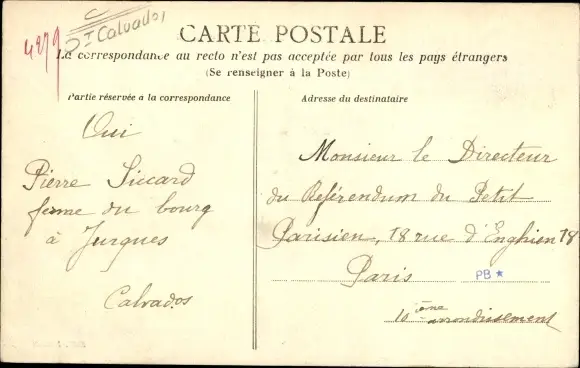 4279
Dt Calvados
CARTE POSTALE
La correspondance au recto n'est pas acceptée par tous les pays étrangers
(Se renseigner à la Poste)
Partie réservée à la correspondance
Oui
Pierre Siccard
ferme du bourg
à Jurques
Calvados
Adresse du destinataire
Monsieur le Directeur
du Référendum du Petit
Parisien, 18 rue d'Enghien 18
Paris
PB★
10ème arrondissement